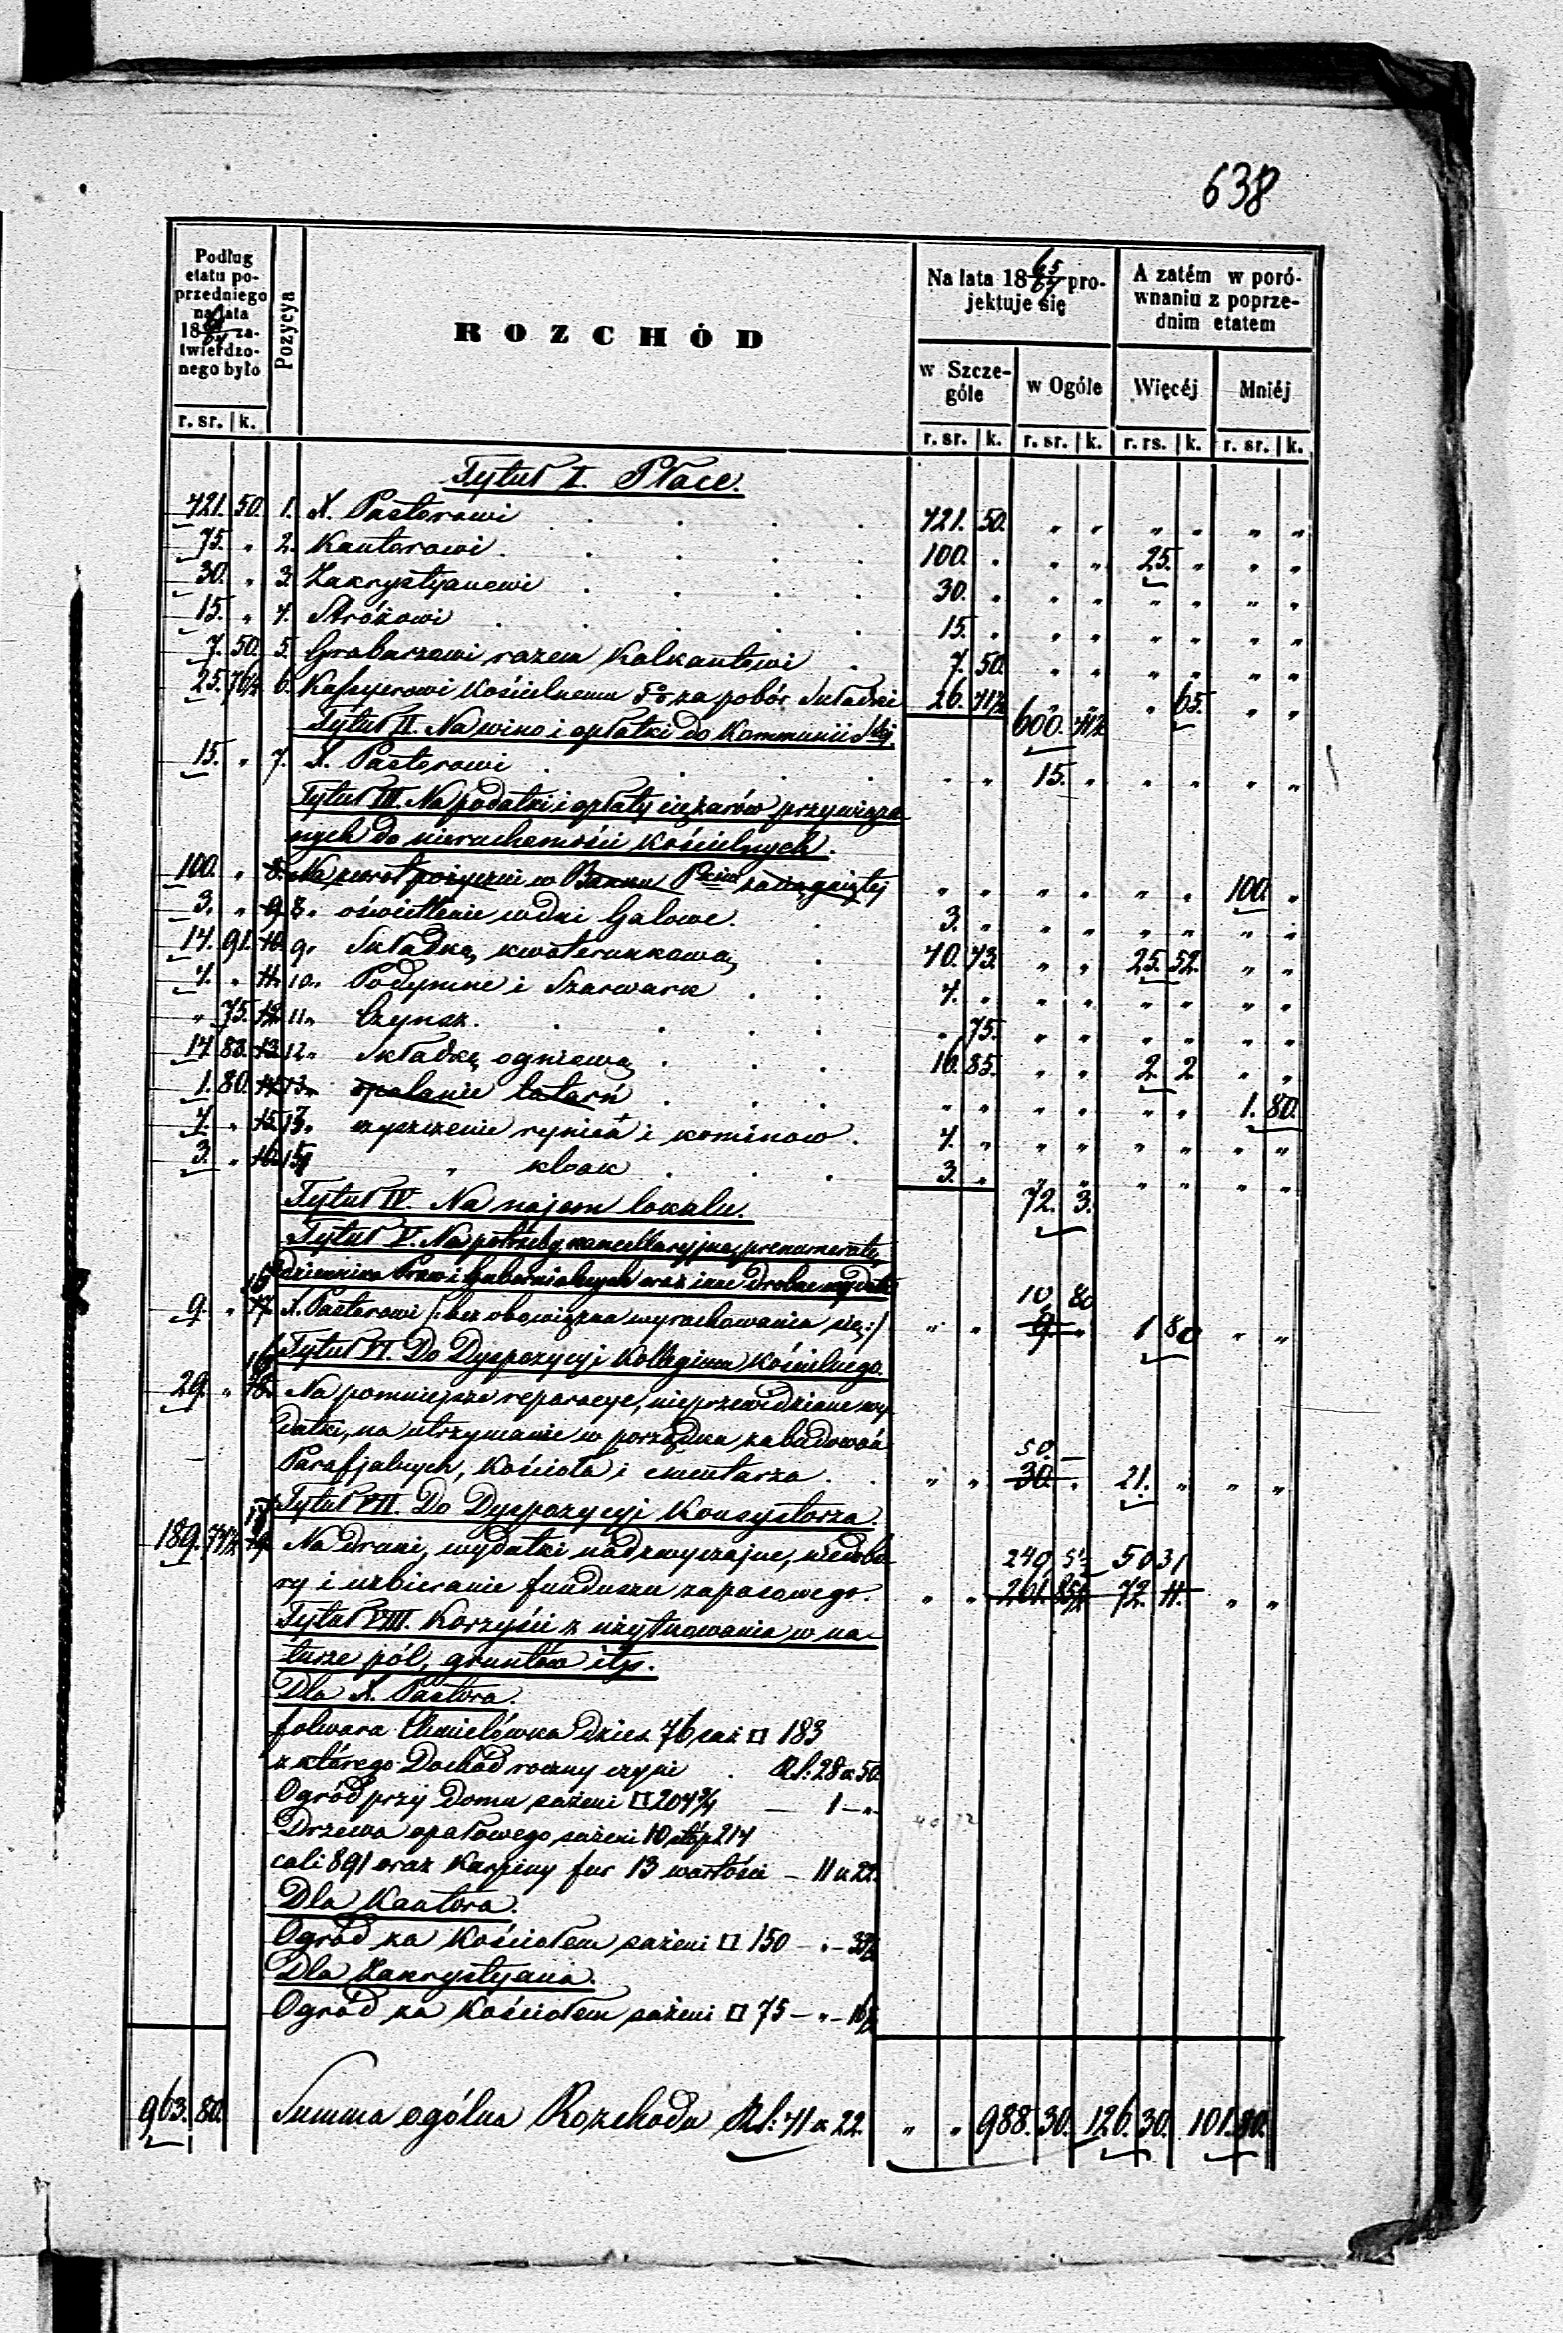 638
Podług etatu poprzedniego na lata 18 zatwierdzonego było
Pozycya
ROZCHÓD
Na lata 18 65/67 projektuje się
A zatém w porównaniu z poprzednim etatem
w Szczególe w Ogóle Więcéj Mniéj
r. sr. k. r. sr. k. r. sr. k. r. rs. k. r. sr. k.
Tytuł I. Płace.
421. 50. 1. X. Pastorowi 421. 50. " " " " " "
75. " 2. Kantorowi 100. " " " 25. " " "
30. " 3. Zakrystyanowi 30. " " " " " " "
15. " 4. Stróżowi 15. " " " " " " "
7. 50. 5. Grabarzowi razem Kalkantowi 7. 50. " " " " " "
25. 76½ 6. Kassyerowi Kościelnemu 5% za pobór Składki 26. 41½ 600. 41½ " 65. " "
Tytuł II. Na wino i opłatki do Kommunii Stéj.
15. " 7. X. Pastorowi " " 15. " " " " "
Tytuł III. Na podatki i opłaty ciężarów przywiąza-
nych do nieruchomości Kościelnych.
100. " 8. Na zwrot pożyczki w Banku Pskim zaciągniętej " " " " " " 100. "
3. " 9. 8. " oświetlenie w dni Galowe. 3. " " " " " " "
14. 91. 10. 9. " Składkę kwaterunkową 40. 43. " " 25. 52. " "
4. " 11. 10. " Podymne i Szarwark 4. " " " " " " "
" 75. 12. 11. " Czynsz. " 75. " " " " " "
14. 83. 13. 12. " Składkę ogniową 16. 85. " " 2. 2. " "
1. 80. 14. 13. " opalanie latarń " " " " " " 1. 80.
4. " 15. 13. " czyszczenie rynien i kominów. 4. " " " " " " "
3. " 16. " kloak 3. " 72. 3. " " " "
Tytuł IV. Na najem lokalu.
Tytuł V. Na potrzeby kancellaryjne, prenumeratę
dziennika Praw i Gubernialnych oraz inne drobne wydatki
9. " 17. 15 X. Pastorowi /: bez obowiązku wyrachowania się :/ " " 9. " 10 80 1 80 " "
Tytuł VI. Do Dyspozycyi Kollegium Kościelnego.
29. " 18. 16 Na pomniejsze reparacye, nieprzewidziane wy-
datki, na utrzymanie w porządku zabudowań
Parafjalnych, Kościoła i cmentarza. " " 30. " 50. — 21. " " "
Tytuł VII. Do Dyspozycyi Konsystorza.
189. 74½ 19. 17 Na druki, wydatki nadzwyczajne, niedobo-
ry i uzbieranie funduszu zapasowego. " " 261. 85½ 240 5½ 72. 11. 50 31 " "
Tytuł VIII. Korzyści z użytkowania w na-
turze pól, gruntów itp.
Dla X. Pastora.
folwark Chmielówka dzies. 76 saż □ 183
z którego Dochód roczny czyni Rs. 28 k 50.
Ogród przy Domu sążeni □ 204¾ — 1 — "
Drzewa opałowego sążeni 10 stóp 214
cali 891 oraz Karpiny fur 13 wartości — 11 k 22.
Dla Kantora.
Ogród za Kościołem sążeni □ 150 — " — 33½
Dla Zakrystyana.
Ogród za Kościołem sążeni □ 75 — " — 16½
963. 80. Summa ogólna Rozchodu Rs: 41 k 22. " " 988. 30. 126. 30. 101. 80.